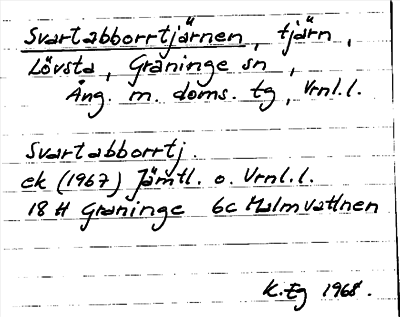 Svartabborrtjärnen, tjärn,
Lövsta, Graninge sn,
Ång. m. doms. tg, Vrnl.l.
Svartabborrtj
ek (1967) Jämtl. o. Vrnl.l.
18 H Graninge 6c Holmvattnen
K.tg 1968.